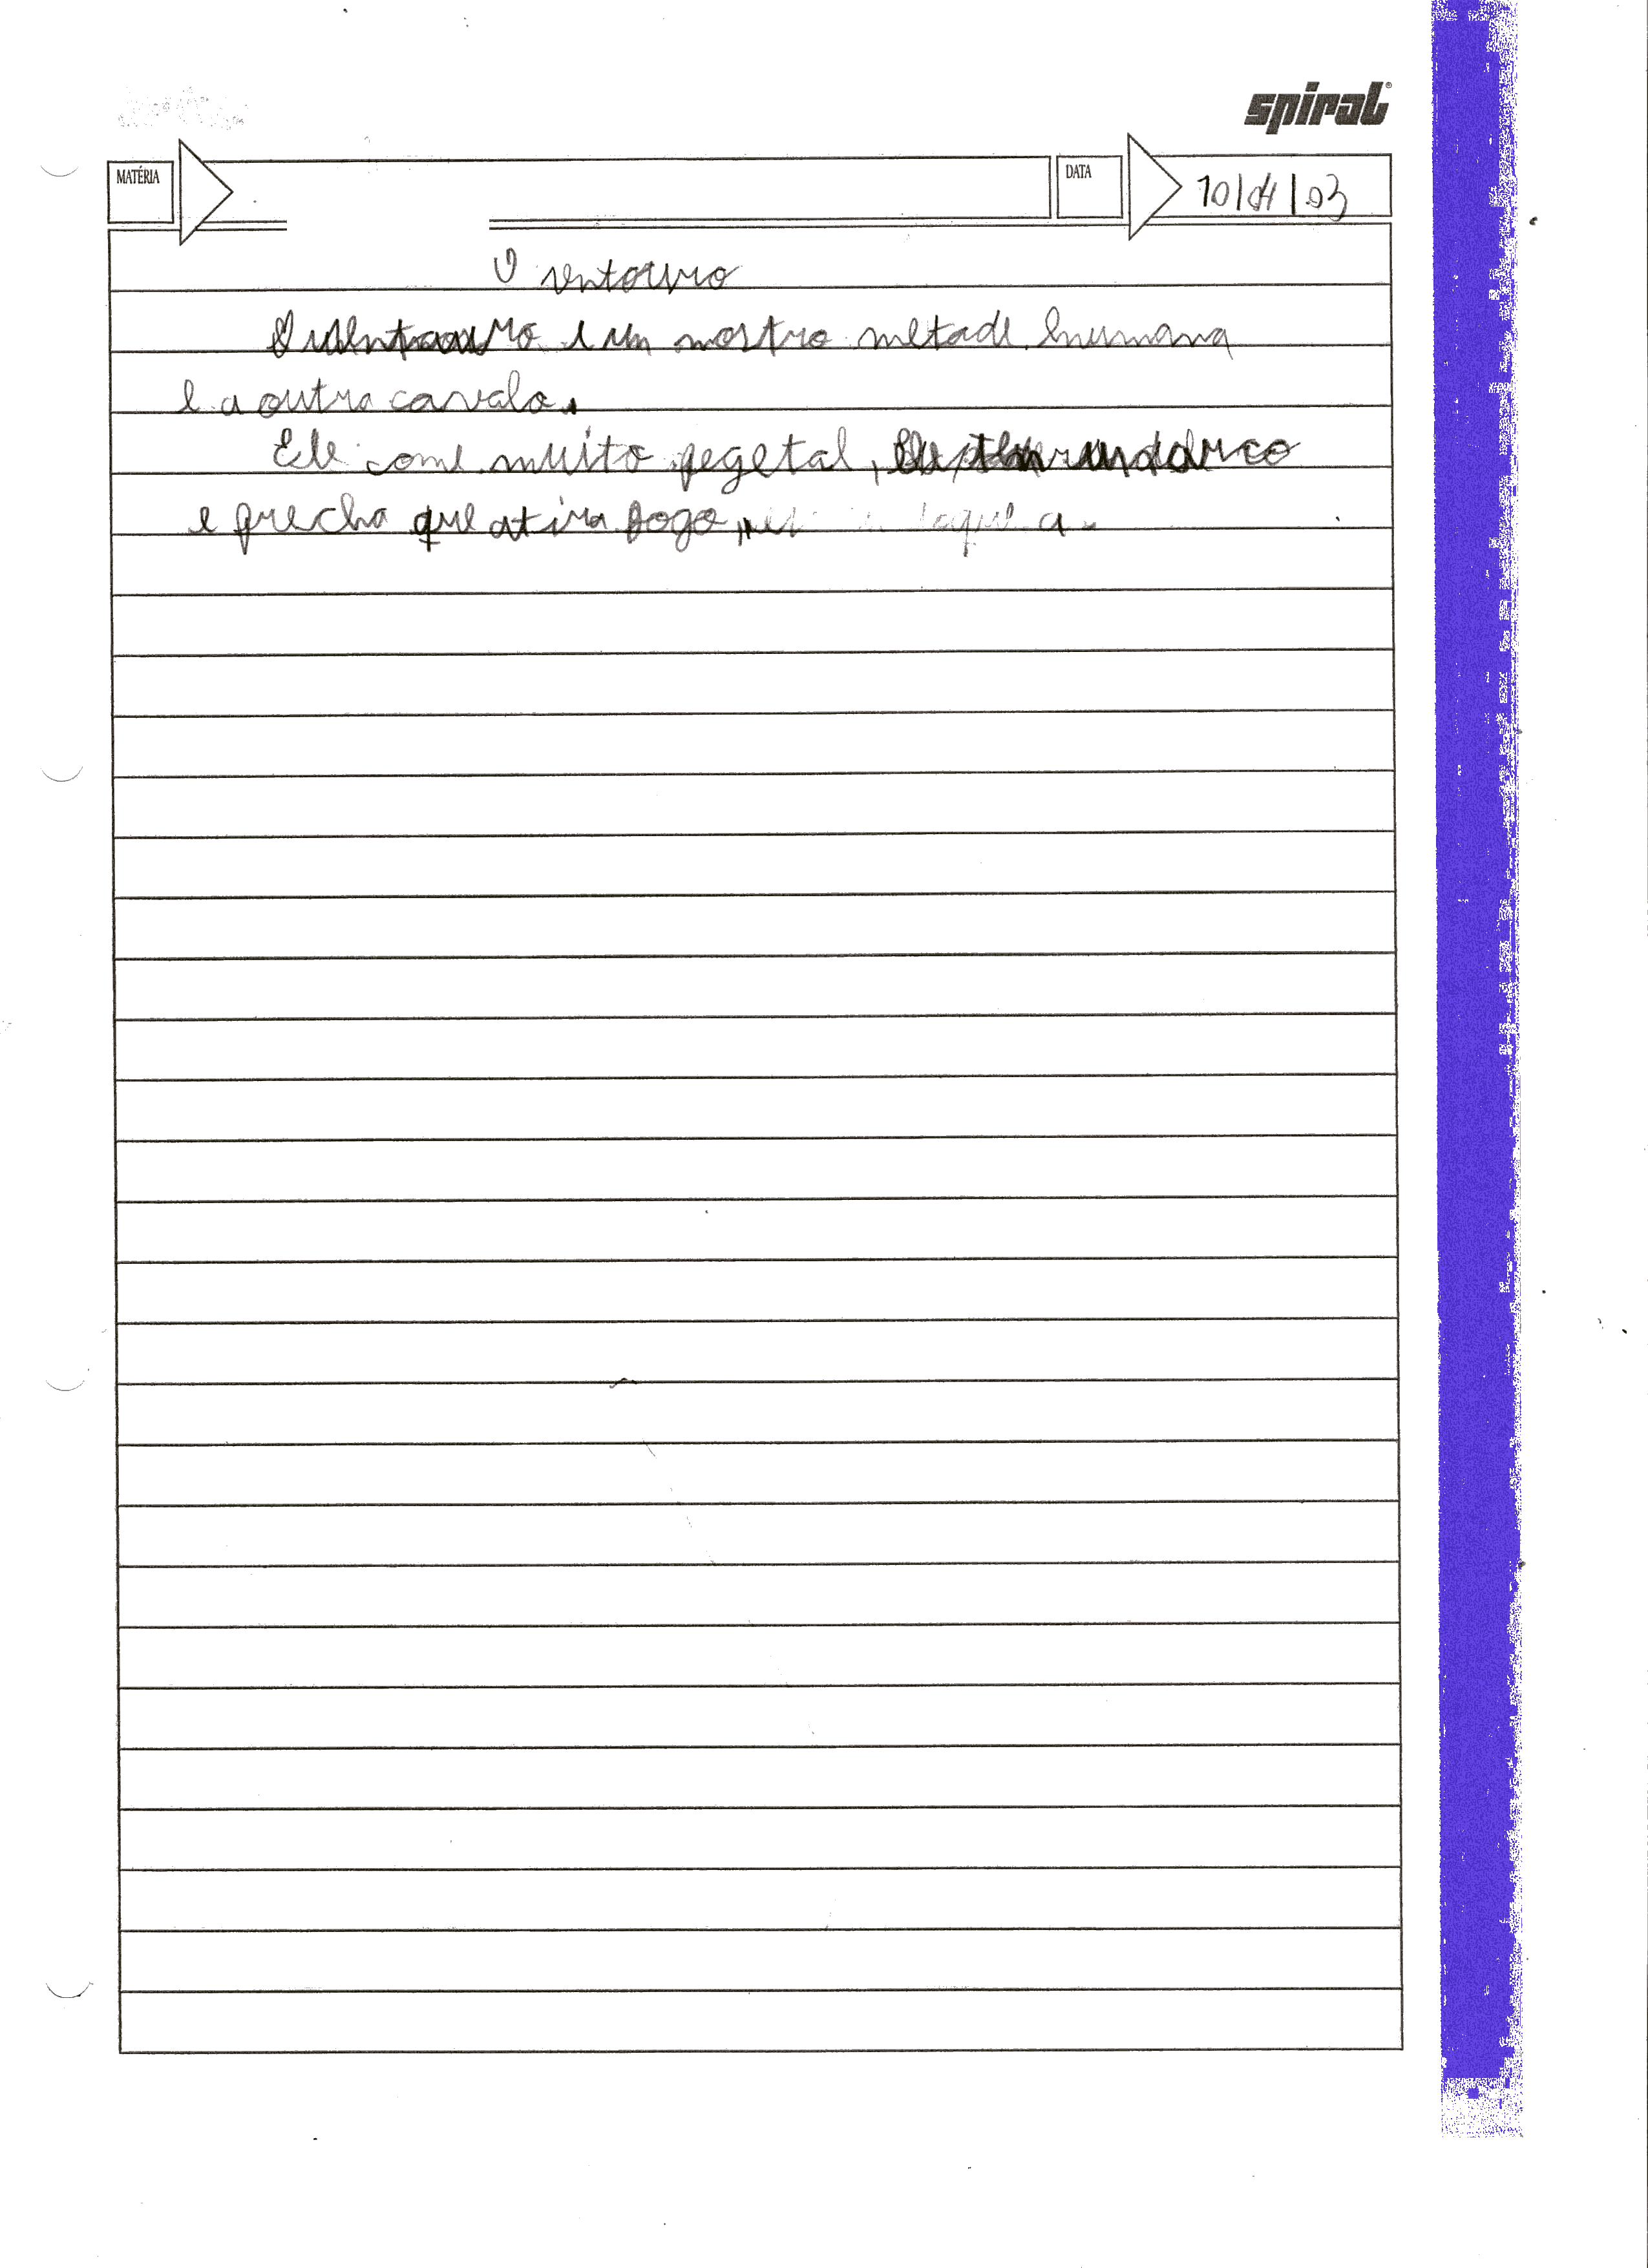 spiral
MATÉRIA
DATA
10/04/03
O sentouro
O sentauro e um mostro metade humana
e a outra cavalo.
Ele come muito gegetal, Ele tem um darco
e frecha que atira fogo,